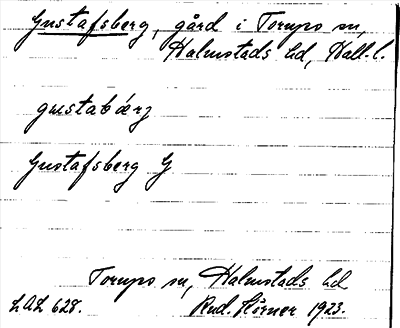 Gustafsberg, gård i Torups sn,
Halmstads hd, Hall. l.
gustabärj
Gustafsberg G
Torups sn, Halmstads hd
LAL 628. Rud. Störner 1923.